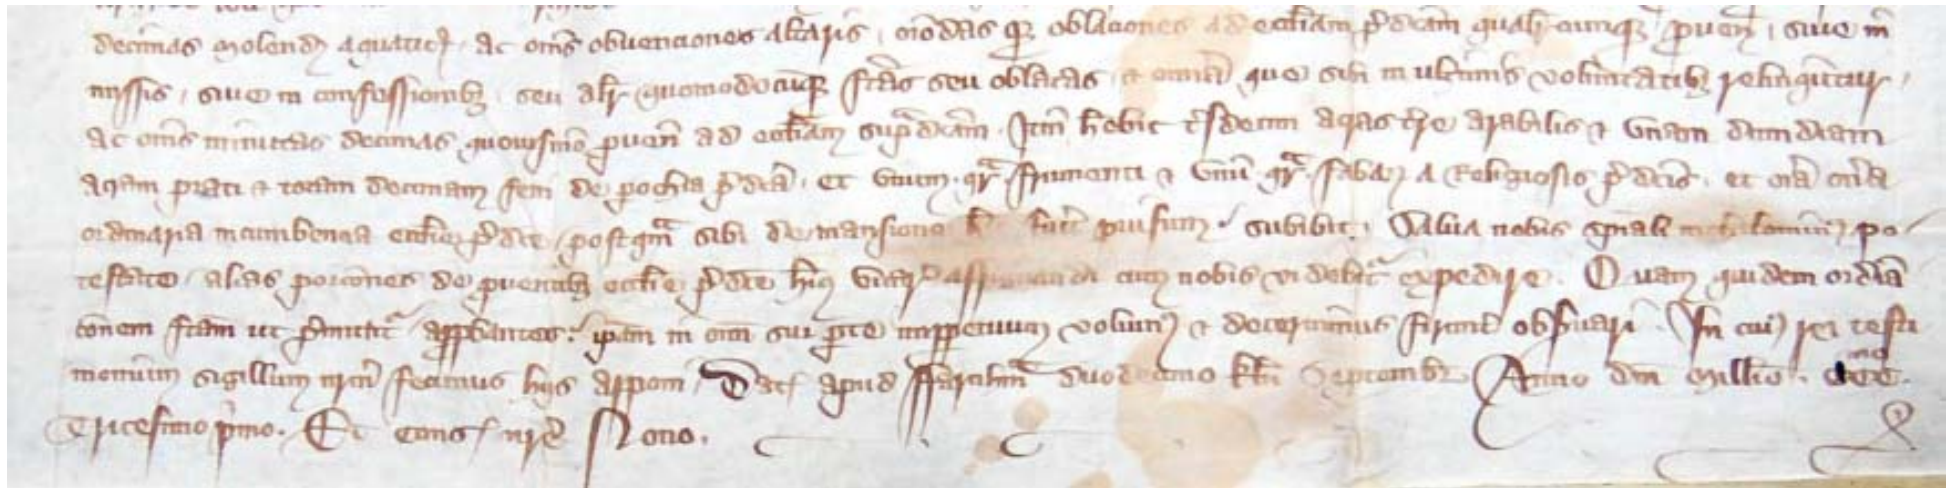 decimas molend aquatic ac om̄s obvenciones altaris . oīodas q oblaciones ad eccl̄iam p̄dc̄am qualit cumq proven . sive in
missis , sive in confessionib seu alit quomodocumq fc̄as seu oblatas . & omnia que sibi in ultimis voluntatib relinqūtur ,
ac om̄s minutas decimas quovismō proven ad eccl̄iam sup̄dc̄am . Itm̄ h̄ebit decim acras t̄re arabilis & unam dimidiam
acram prati & totam decimam feni de poch̄ia p̄dc̄a . et unum qr̄ frumenti & unū qr̄ fabar a Religiosis p̄dc̄is . et om̄ia on̄a
ordinaria incumbencia eccl̄ie p̄dc̄e / postqm̄ sibi de mansione provisum subibit . Salva nobis po
testate alias porcōnes de proventib eccl̄ie p̄dc̄e hui vicar assignandi cum nobis videbit̄ expedire . Quam quidem ordīa
cōnem fc̄am ut p̄mittit̄ approbantes . ip̄am in om̄i sui p̄te imppetuum volum & decernimus firmit̄ observari . In cui rei testi
monium sigillum nr̄m fecimus hiis apponi . Dat apud duodecimo kl̄n Septembr Anno dn̄i Millīo . ccc̄c̄ .
Tricesimo p̄mo . Et cons nr̄e Nono .